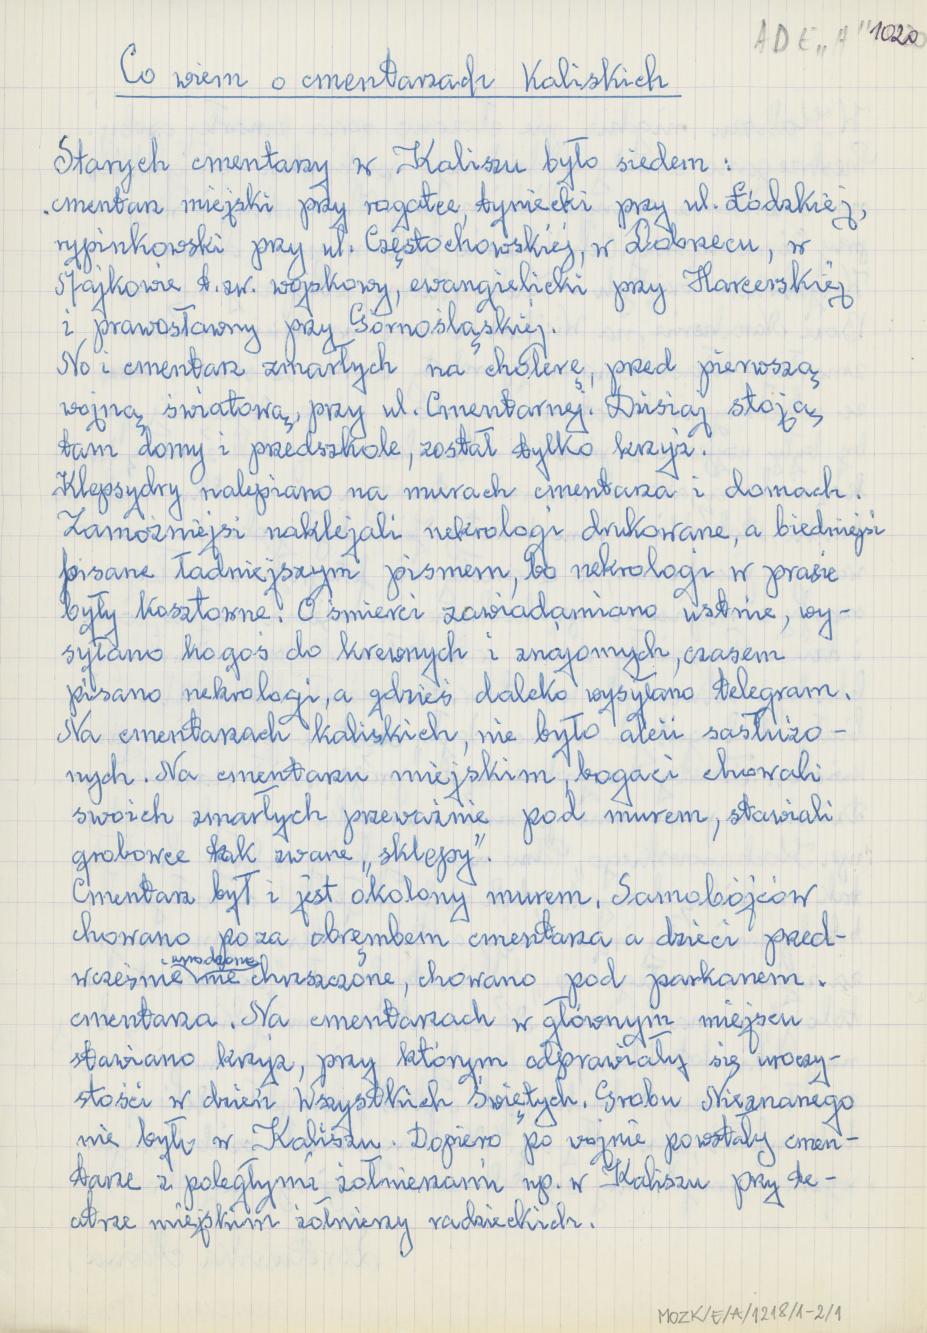 ADE "A" 1020
Co wiem o cmentarzach Kaliskich
Starych cmentarzy w Kaliszu było siedem:
cmentarz miejski przy rogatce, tyniecki przy ul. Łódzkiej,
rypinkowski przy ul. Częstochowskiej, w Dobrzecu, w
Majkowie t.zw. wojskowy, ewangielicki przy Harcerskiej
i prawosławny przy Górnośląskiej.
No i cmentarz zmarłych na cholerę, przed pierwszą
wojną światową, przy ul. Cmentarnej. Dzisiaj stoją
tam domy i przedszkole, został tylko krzyż.
Klepsydry nalepiano na murach cmentarza i domach.
Zamożniejsi naklejali nekrologi drukowane, a biedniejsi
pisane ładniejszym pismem, bo nekrologi w prasie
były kosztowne. O śmierci zawiadamiano ustnie, wy-
syłano kogoś do krewnych i znajomych, czasem
pisano nekrologi, a gdzieś daleko wysyłano telegram.
Na cmentarzach kaliskich, nie było aleii zasłużo-
nych. Na cmentarzu miejskim, bogaci chowali
swoich zmarłych przeważnie pod murem, stawiali
grobowce tak zwane „sklepy".
Cmentarz był i jest okolony murem. Samobójców
chowano poza obrębem cmentarza a dzieci przed-
wcześnie urodzone nie chrzszczone, chowano pod parkanem.
cmentarza. Na cmentarzach w głównym miejscu
stawiano krzyż, przy którym odprawiały się uroczy-
stości w dzień Wszystkich Świętych. Grobu Nieznanego
nie było w Kaliszu. Dopiero po wojnie powstały cmen-
tarze z poległymi żołnierzami np. w Kaliszu przy te-
atrze miejskim żołnierzy radzieckich.
MOZK/E/A/1218/1-2/1